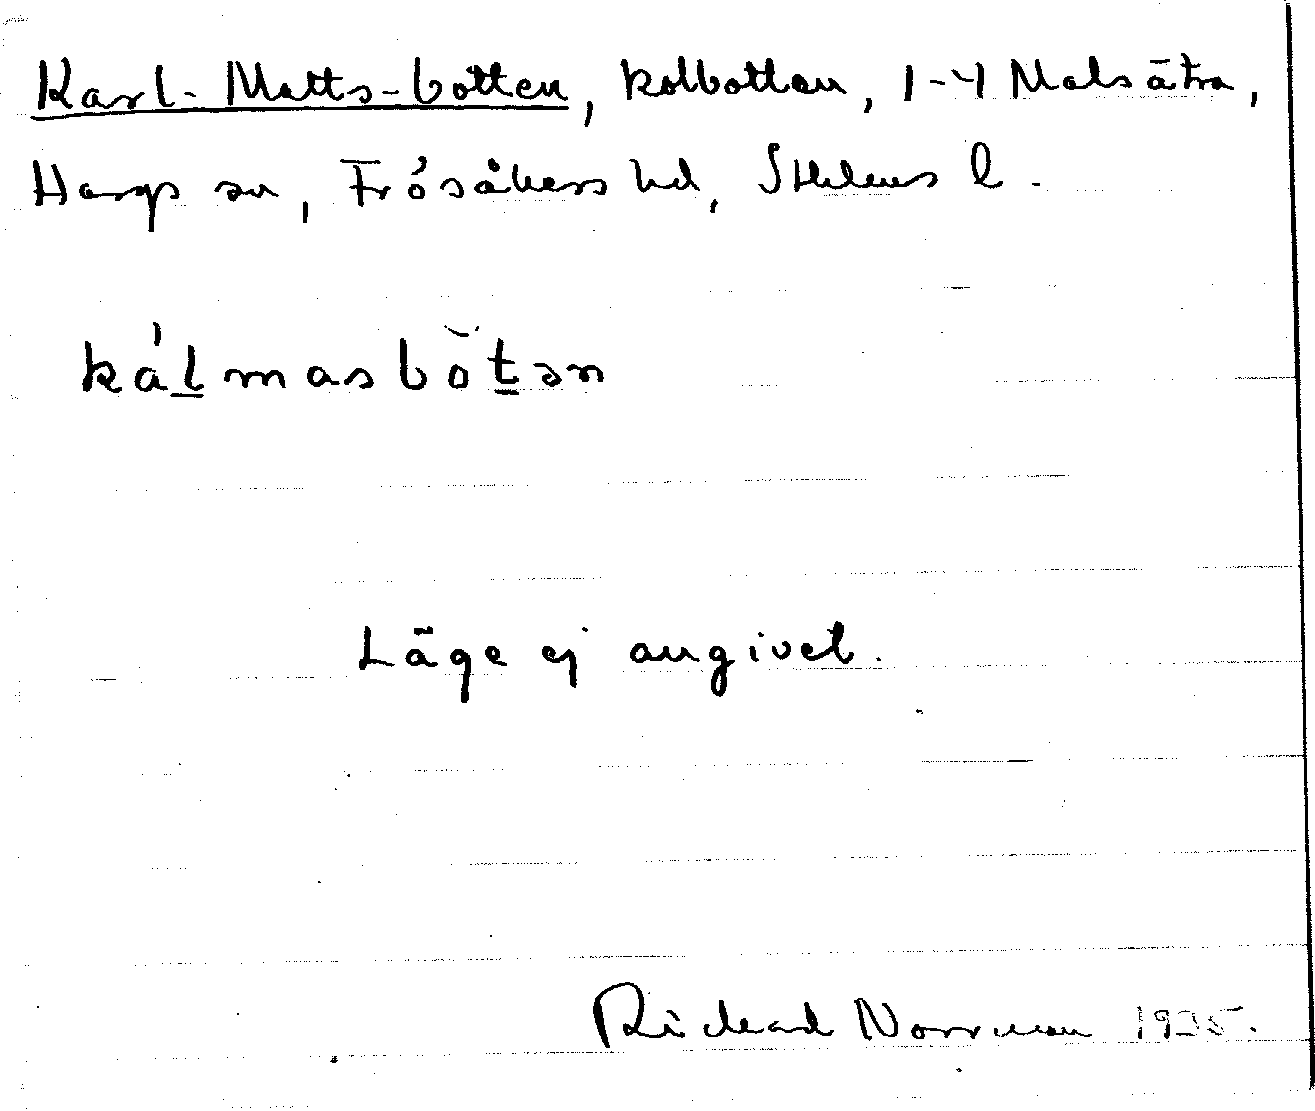 Karl-Matts-botten, kolbotten, 1-4 Malsätra,
Hargs sn, Frösåkers hd, Sthlms l.
ká̲l̲masbŏ̀t̲ən
Läge ej angivet.
Richard Norrman 1935.